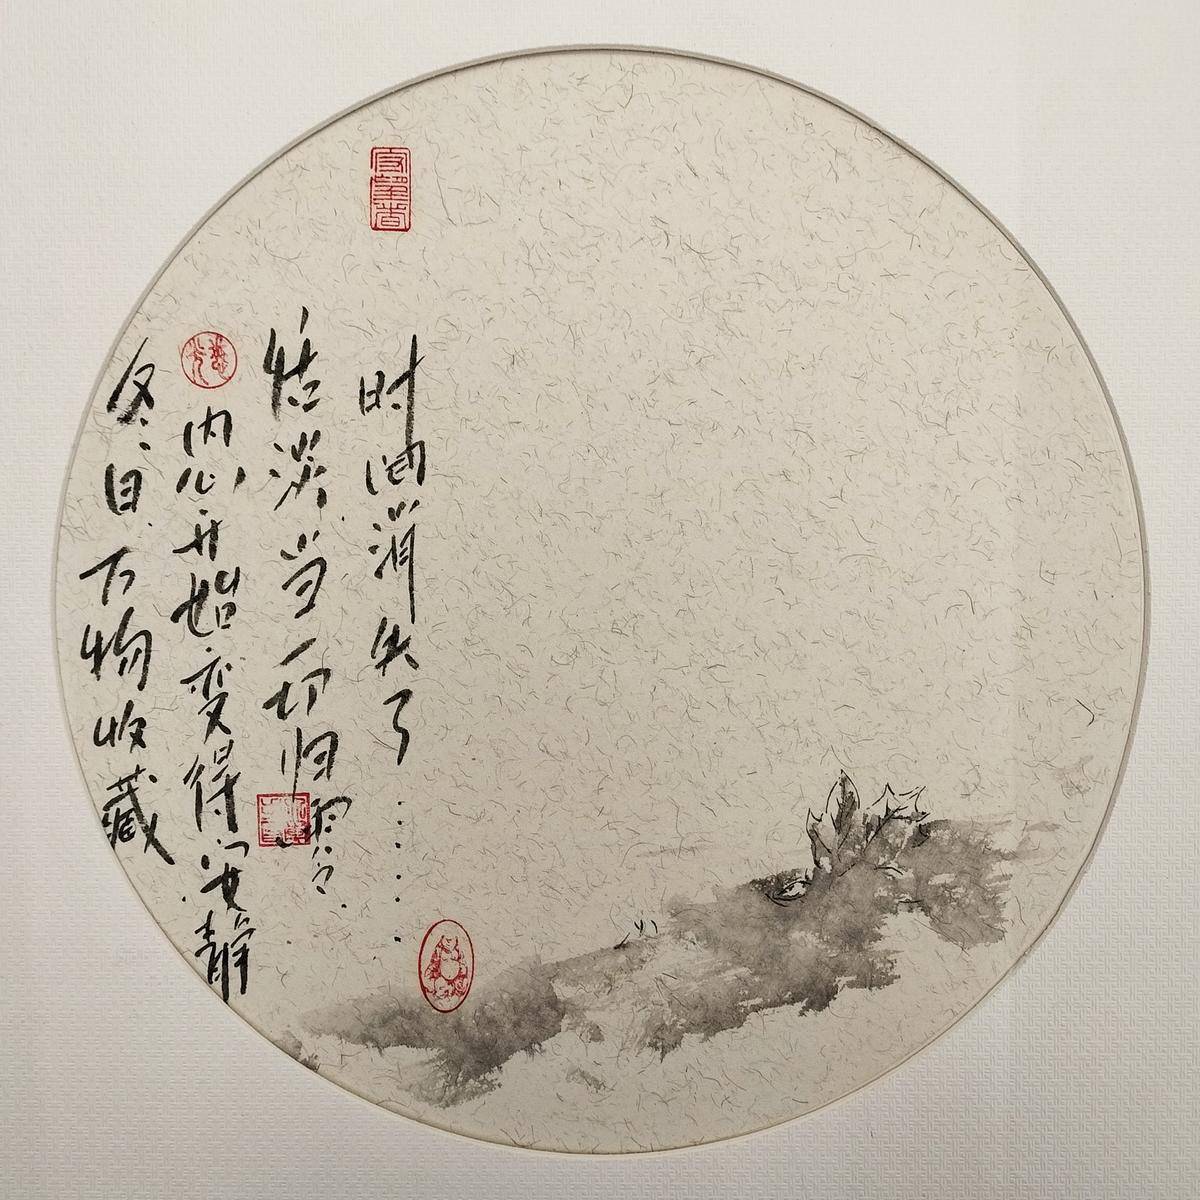 冬日万物收藏
内心开始变得安静
恬淡当一切归零
时间消失了……